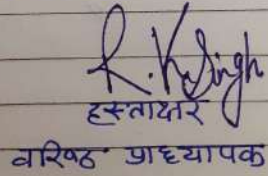 R.K Singh
हस्ताक्षर
वरिष्ठ प्राध्यापक